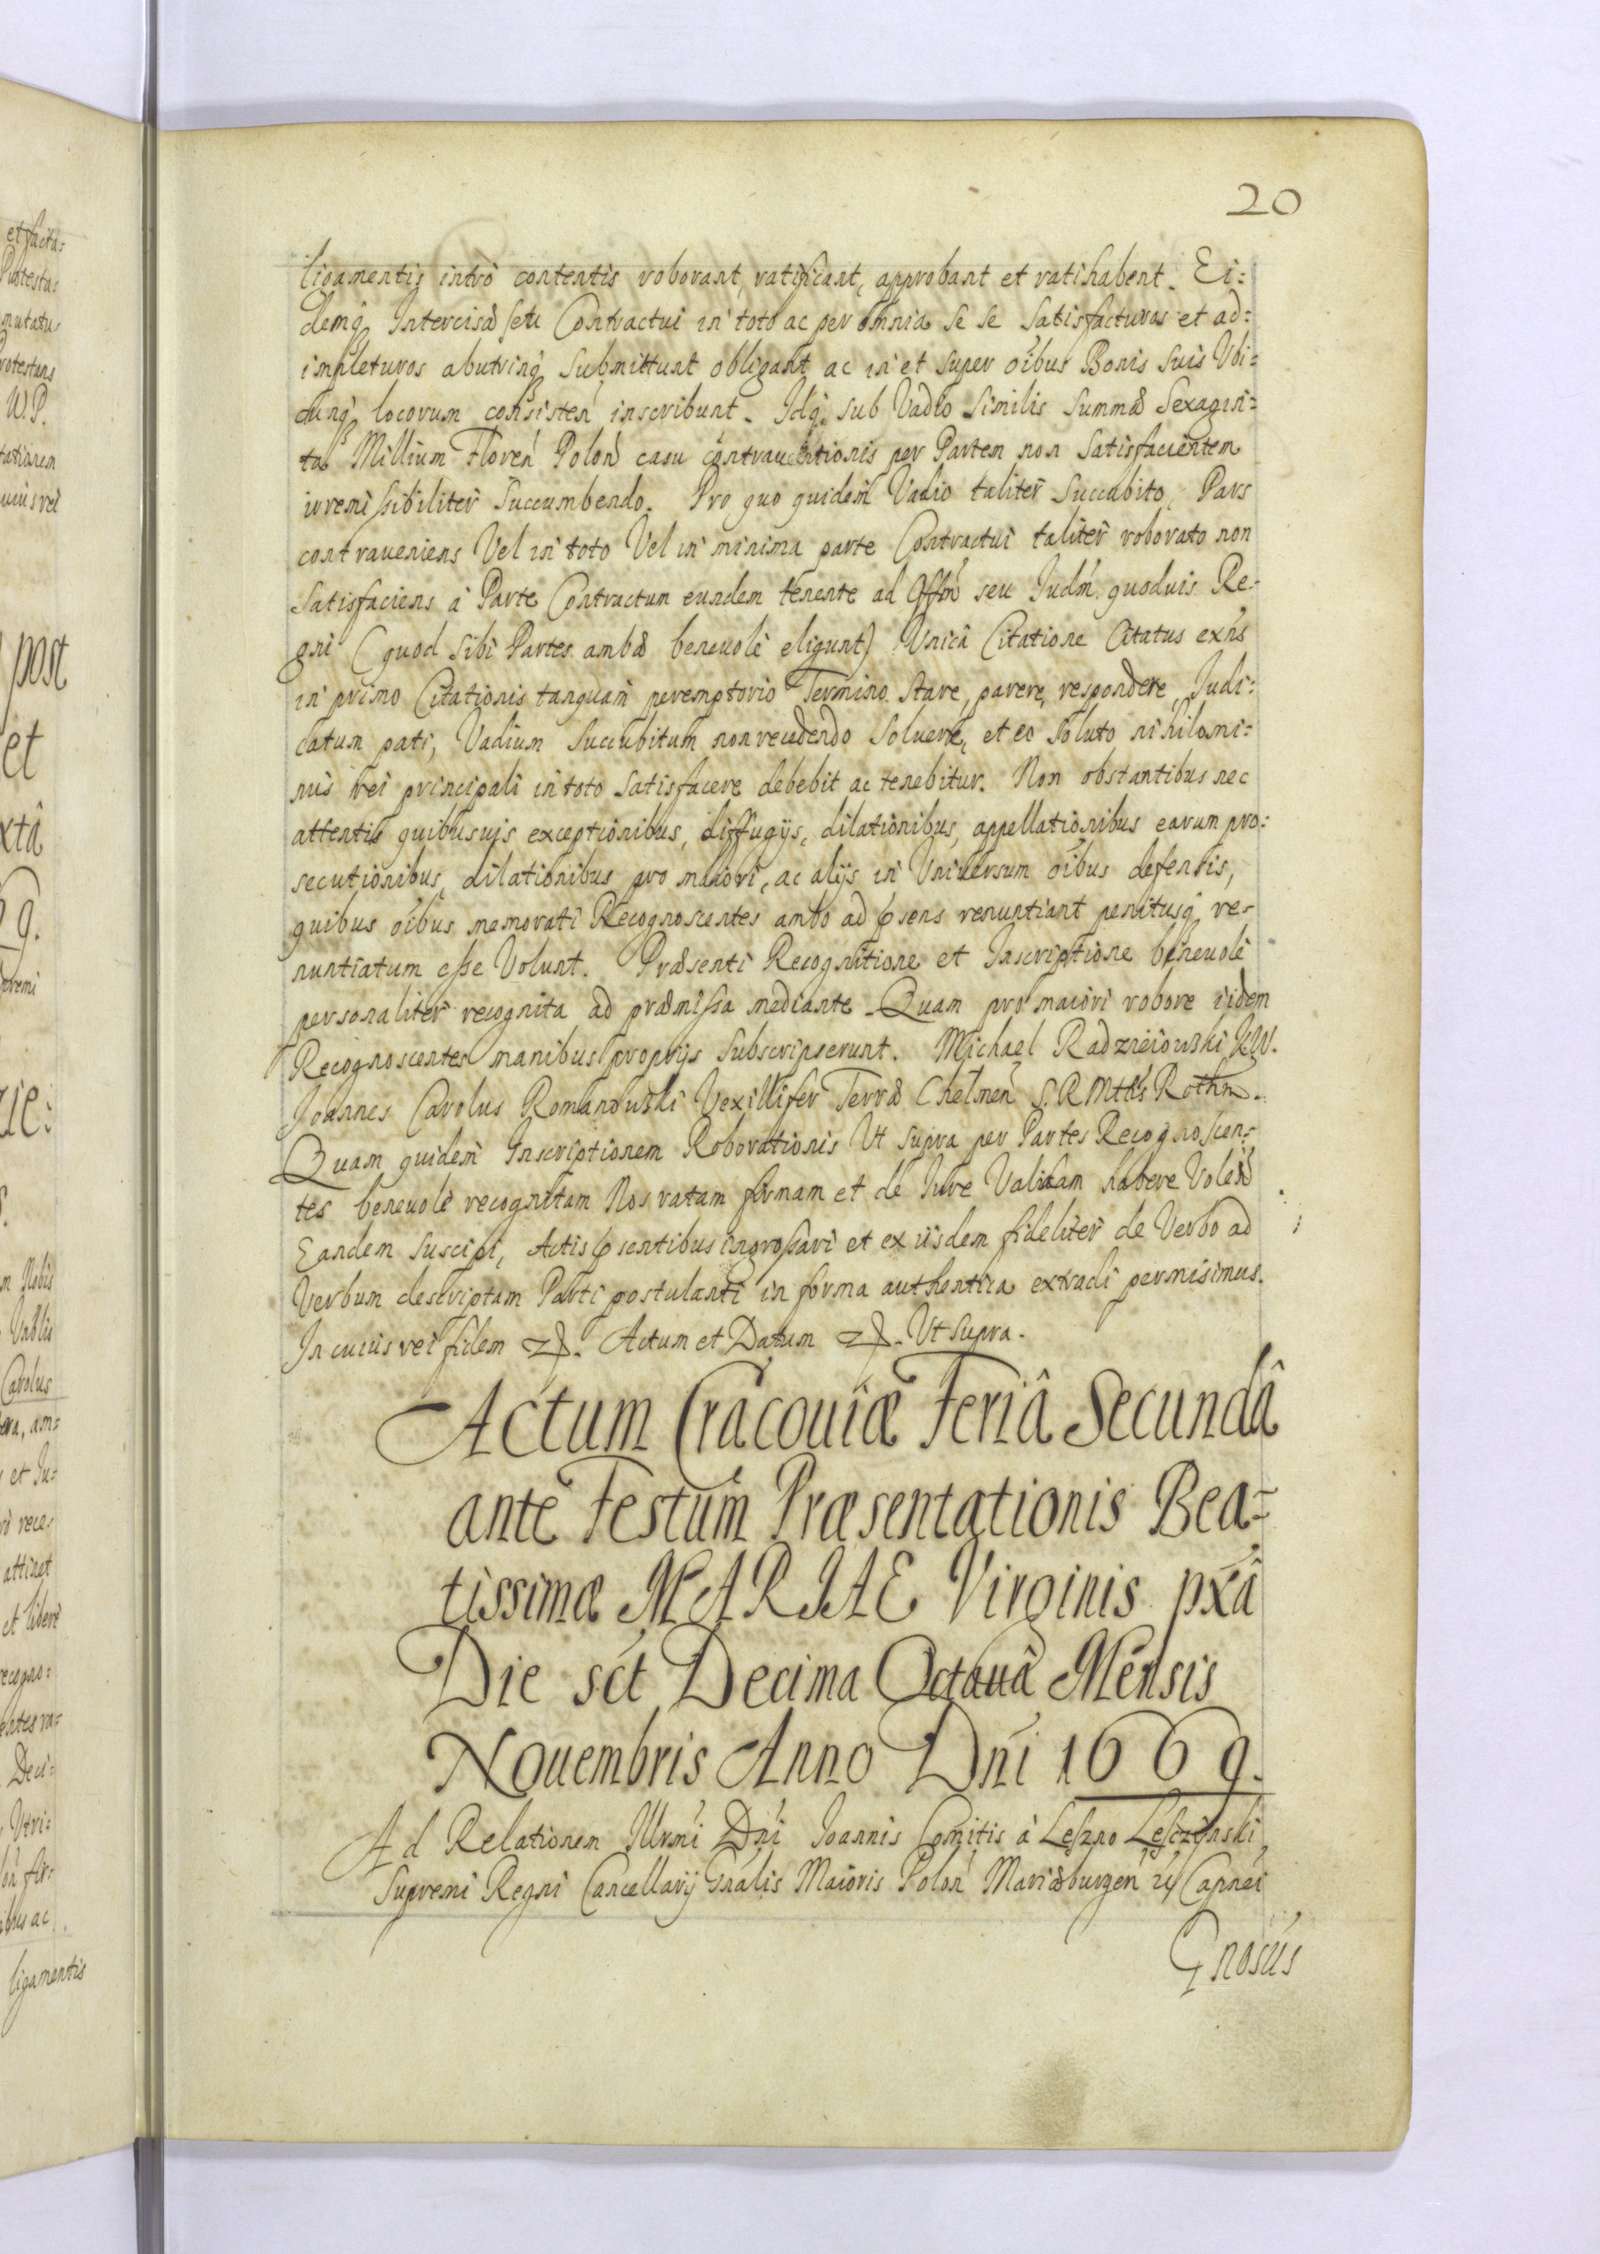 20
ligamentis intro contentis roborant, ratificant, approbant et ratihabent. Ei:
demq₃ Intercisæ seu Contractui in toto ac per omnia se se satisfacturos et ad:
impleturos abutrinq₃ submittunt obligant ac in et super oïbus Bonis suis Ubi:
cunq₃ locorum consisteń inscribunt. Idq₃ sub Vadio similis summæ Sexagin:
ta Millium Floreń Poloń casu contrauentionis per Partem non satisfacientem
irremissibiliter succumbendo. Pro quo quidem Vadio taliter succubito, Pars
contraueniens Vel in toto Vel in minima parte Contractui taliter roborato non
satisfaciens à Parte Contractum eundem tenente ad Offm̃ seu Judm̃ quoduis Re-
gni (quod sibi Partes ambæ beneuolè eligunt) Unicâ Citatione Citatus exńs
in primo Citationis tanquam peremptorio Termino stare, parere, respondere, Judi:
catum pati, Vadium succubitum non recedendo soluere, et eo soluto nihilomi:
nus rei principali in toto satisfacere debebit ac tenebitur. Non obstantibus nec
attentis quibusuis exceptionibus, diffugijs, dilationibus, appellationibus earum pro:
secutionibus, dilationibus pro maiori, ac alijs in Vniuersum oïbus defensis,
quibus oïbus memorati Recognoscentes ambo ad p̃sens renuntiant penitusq₃ re-
nuntiatum esse Volunt. Præsenti Recognitione et Inscriptione beneuolè
personaliter recognita ad præmissa mediante. Quam pro maiori robore iidem
Recognoscentes manibus proprijs subscripserunt. Michael Radzieiowski KW.
Joannes Carolus Romanowski Vexillifer Terræ Chelmeń S. R Mttis Rothm.
Quam quidem Inscriptionem Roborationis Ut supra per Partes Recognoscen:
tes beneuolè recognitam Nos ratam firmam et de Iure Validam habere Voleń
Eandem suscipi, Actis p̃sentibus ingrossari et ex iisdem fideliter de Verbo ad
Verbum descriptam Parti postulanti in forma authentica extradi permisimus.
In cuius rei fidem . Actum et Datum . Ut supra.
Actum Cracouiæ Feriâ Secundâ
ante Festum Præsentationis Bea-
tissimæ MARIAE Virginis pxâ
Die sct Decima Octauâ Mensis
Nouembris Anno Dńi 1669.
Ad Relationem Illrmi Dńi Joannis Comitis à Leszno Lesczynski,
Supremi Regni Cancellarij Gnalis Maioris Poloń Mariæburgeń Capnei
Gnosus